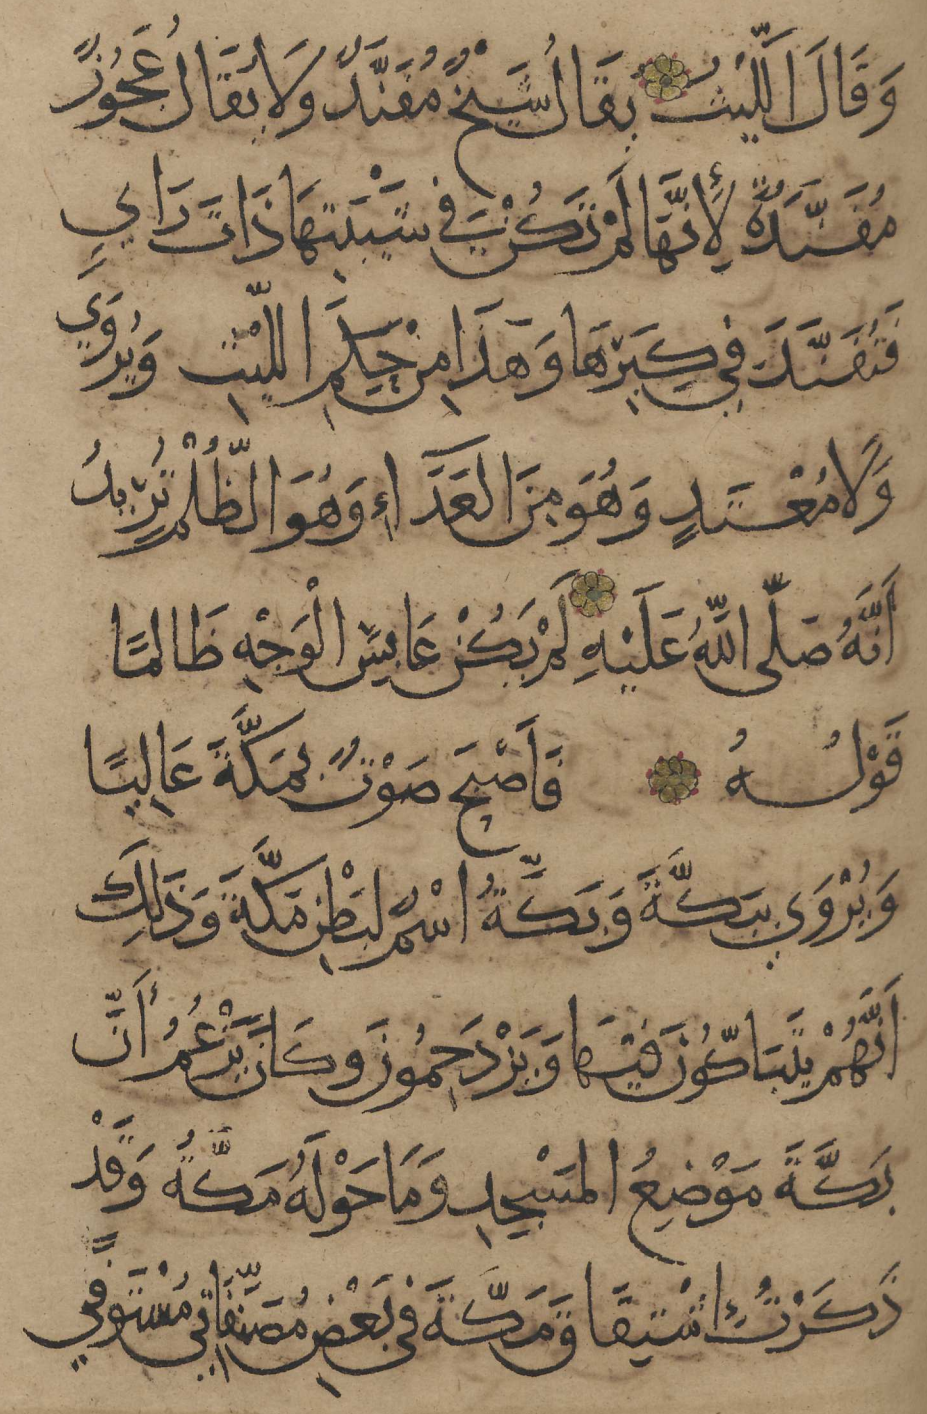 وَقَالَ اللَّيْثُ يُقَالُ شَيْخٌ مُفَنَّدٌ وَلَا يُقَالُ عَجُوزٌ
مُفَنَّدَةٌ لِأَنَّهَا لَمْ تَكُنْ فِي شَبِيبَتِهَا ذَاتَ رَايٍ
فَتُفَنَّدَ فِي كِبَرِهَا وَهَذَا مِنْ حِكَمِ اللَّيْثِ وَيُرْوَي
وَلَا مُعْتَدٍ وَهُوَ مِنَ العَدَاءِ وَهُوَ الظُّلْمُ يُرِيدُ
أَنَّهُ صَلَّى اللَّهُ عَلَيْهِ لَمْ يَكُنْ عَابِسَ الْوَجْهِ ظَالِمًا
قَوْلُهُ فَأَصْبَحَ صَوْتٌ بِمَكَّةَ عَالِيًا
وَيُرْوَي بِبَكَّةَ وَبَكَّةُ اسْمٌ لِبَطْنِ مَكَّةَ وَذَلِكَ
أَنَّهُمْ يَتَبَاكُّونَ فِيهَا وَيَزْدَحِمُونَ وَكَانَ يَزْعُمُ أَنَّ
بَكَّةَ مَوْضِعُ المَسْجِدِ وَمَا حَوْلَهُ مَكَّةُ وَقَدْ
ذَكَرْتُ اشْتِقَاقَ مَكَّةَ فِي بَعْضِ مُصَنَّفَاتِي مُسْتَوْفًي